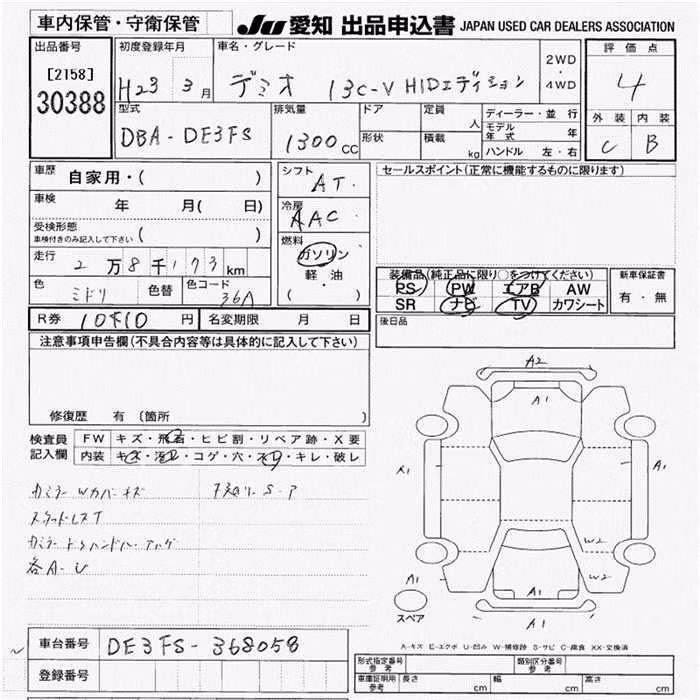 車内保管・守衛保管
JU 愛知 出品申込書 JAPAN USED CAR DEALERS ASSOCIATION
出品番号
[2158]
30388
初度登録年月
H23 3月
車名・グレード
デミオ 13C-V HIDエディション
2WD
・
4WD
評価点
4
外装 内装
C B
型式
DBA-DE3FS
排気量
1300cc
ドア
形状
定員
人
積載
kg
ディーラー・並行
モデル年式 年
ハンドル 左・右
車歴 自家用・( )
車検 年 月( 日)
受検形態
車検付きのみ記入して下さい ( )
走行
2万8千173km
色 ミドリ 色替 色コード 36A
シフト
AT
冷房
AAC
燃料
ガソリン
軽・油
( ・ )
セールスポイント(正常に機能するものに限ります)
装備品(純正品に限り○をつけてください)
PS PW エアB AW
SR ナビ TV カワシート
新車保証書
有・無
後日品
R券 円 名変期限 月 日
注意事項申告欄(不具合内容等は具体的に記入して下さい)
修復歴 有 (箇所 )
検査員
記入欄
FW キズ・飛石・ヒビ割・リペア跡・X要
内装 キズ・汚レ・コゲ・穴・スリ・キレ・破レ
スタッドレスT
各A-U
A2
A1
A1
A1
W2
W2
A1
A1
A1
スペア
A-キズ E-エクボ U-凹み W-補修跡 S-サビ C-腐食 XX-交換済
車台番号 DE3FS-368058
登録番号
形式指定番号
参考
類別区分番号
参考
車庫証明用
参考
長さ cm 幅 cm 高さ cm